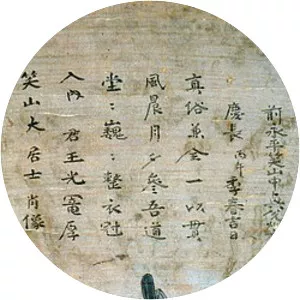 笑山大居士肖像
入内君王光寵厚
堂〻巍〻整衣冠
風晨月夕參吾道
真俗兼全一以貫
慶長丙午季春吉日
前永平